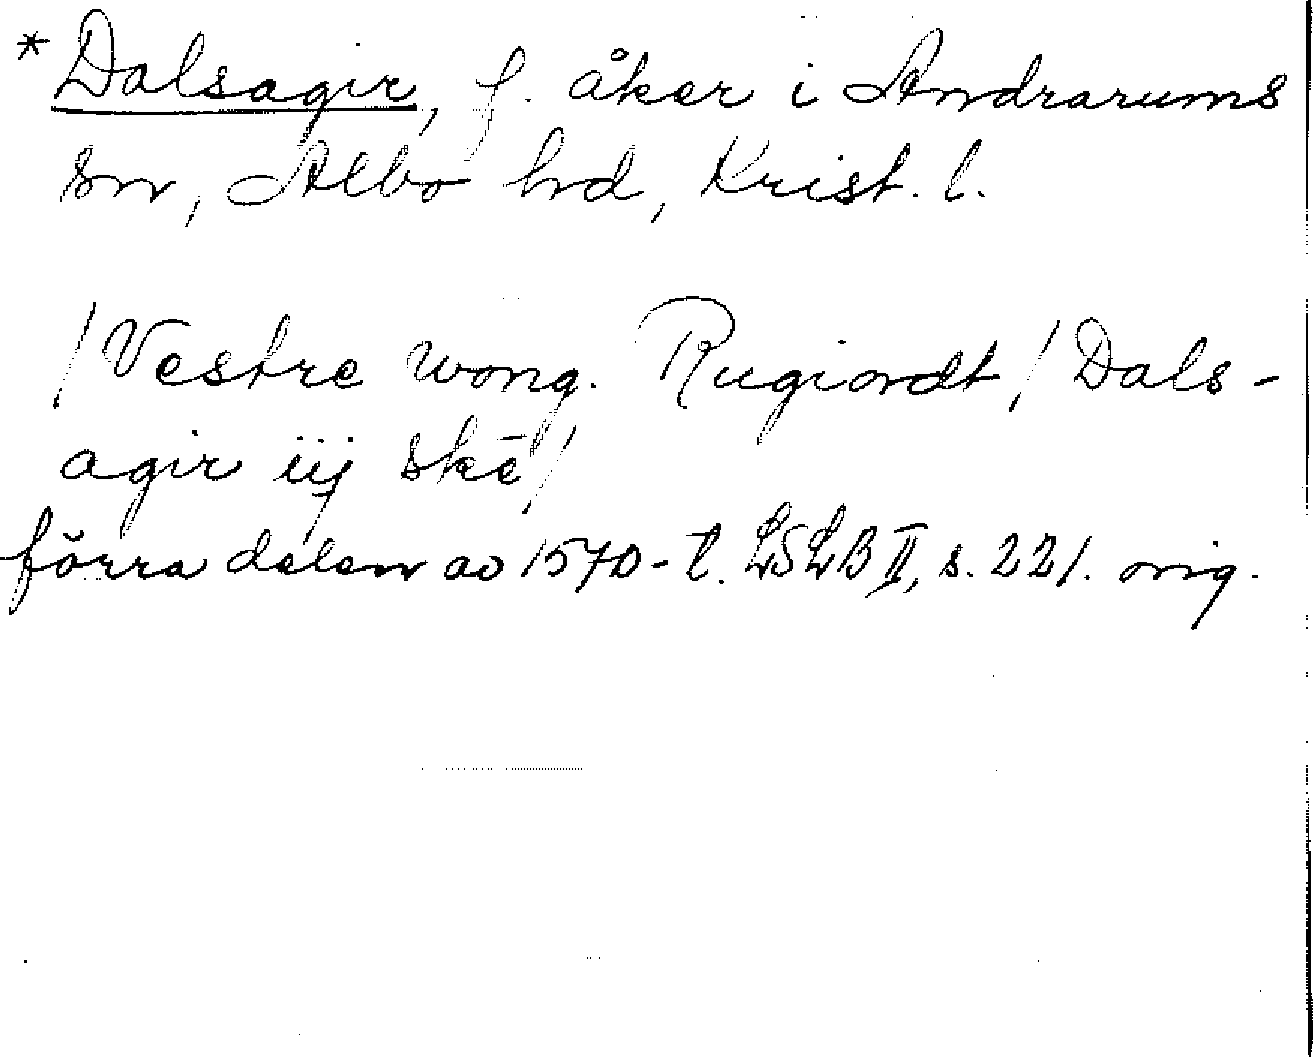 *Dalsagir, f. åker i Andrarums
sn, Albo hd, Krist. l.
/Vestre wong. Rugiordt/ Dals-
agir iij skē/
förra delen av 1570-t. LSLB II, s. 221. orig.